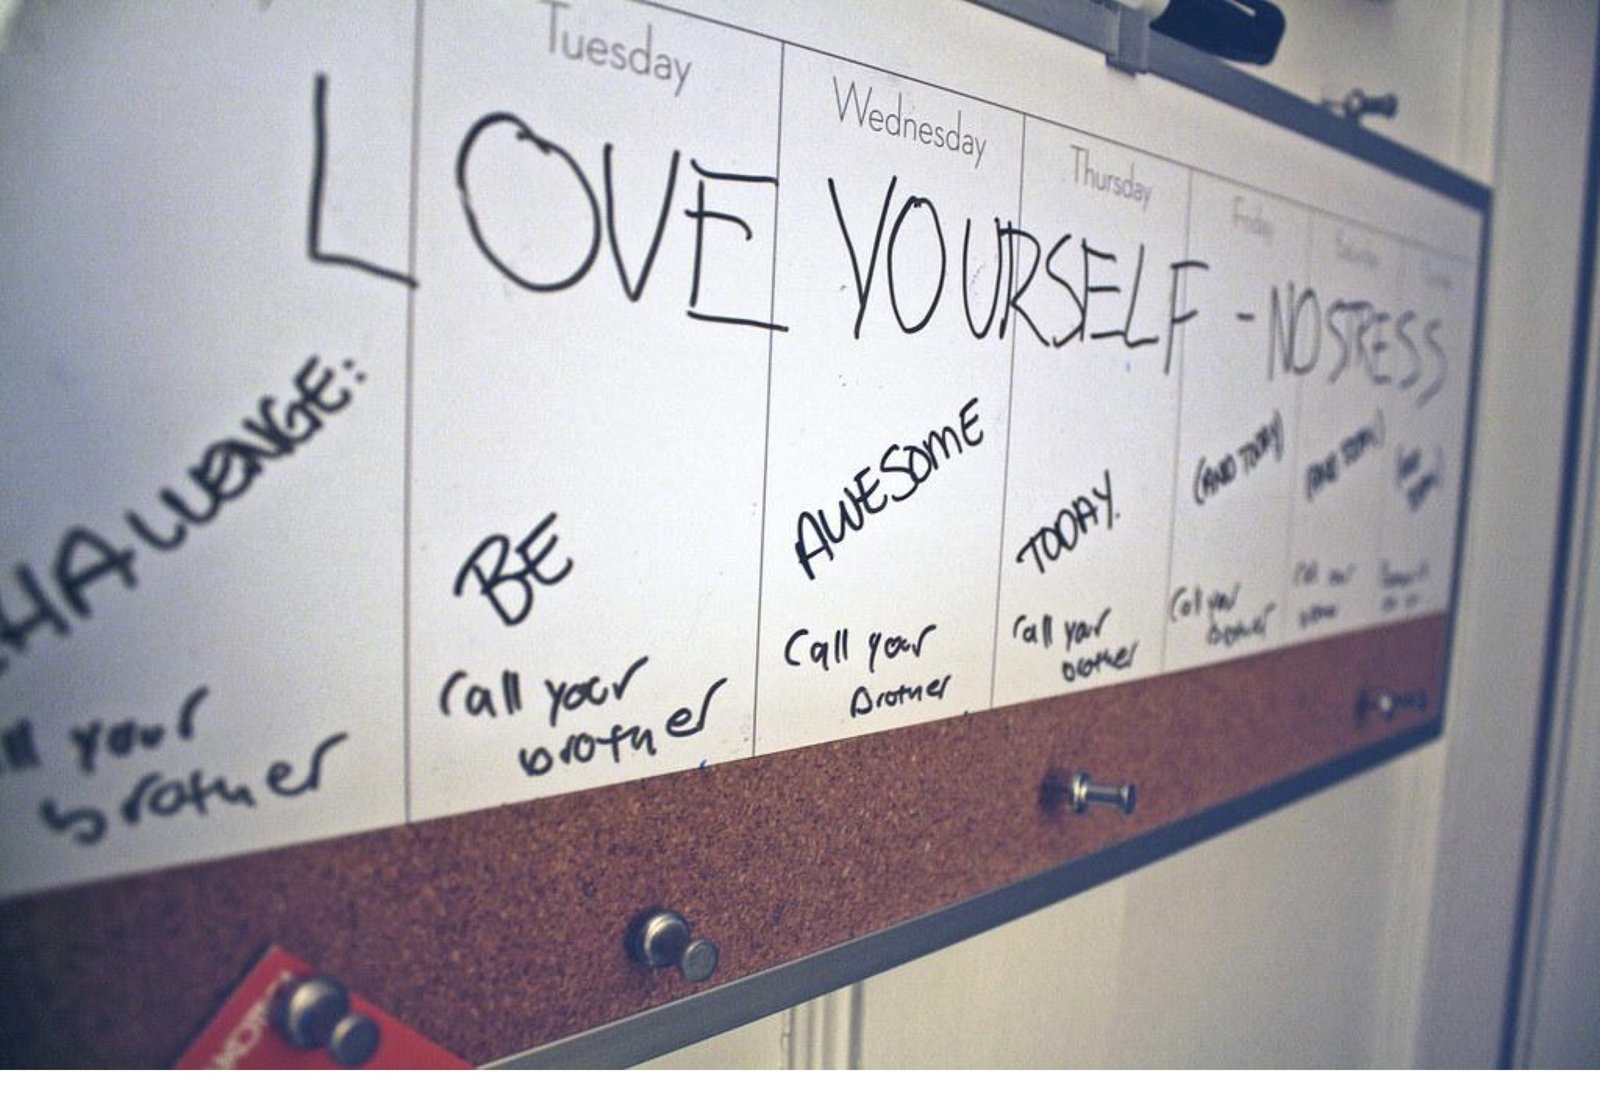 Tuesday Wednesday Thursday Friday
LOVE YOURSELF - NO STRESS
CHALLENGE: BE AWESOME TODAY. (AND TODAY) (AND TODAY)
your
brother
Call your
brother
Call your
brother
Call your
brother
Call your
brother